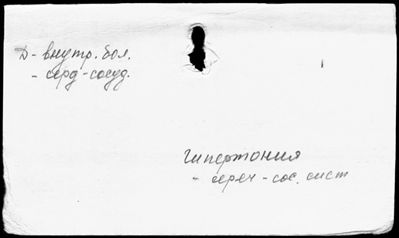 Д - внутр. бол.
- серд - сосуд.
гипертония
- серд - сос. сист